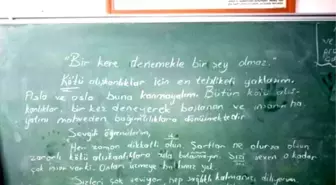 "Bir kere denemekle bir şey olmaz."
Kötü alışkanlıklar için en tehlikeli yaklaşım.
Asla ve asla buna kanmayalım. Bütün kötü alış-
kanlıklar, bir kez deneyerek başlanan ve insan ha-
yatını mahveden bağımlılıklara dönüşmektedir.
Sevgili öğrencilerim,
Her zaman dikkatli olun. Şartlar ne olursa olsun
zararlı kötü alışkanlıklara asla bulaşmayın. Sizi seven o kadar
çok insan var ki. Onları üzmeye
Sizleri çok seviyor hep sağlıklı kalmanızı diliyorum.